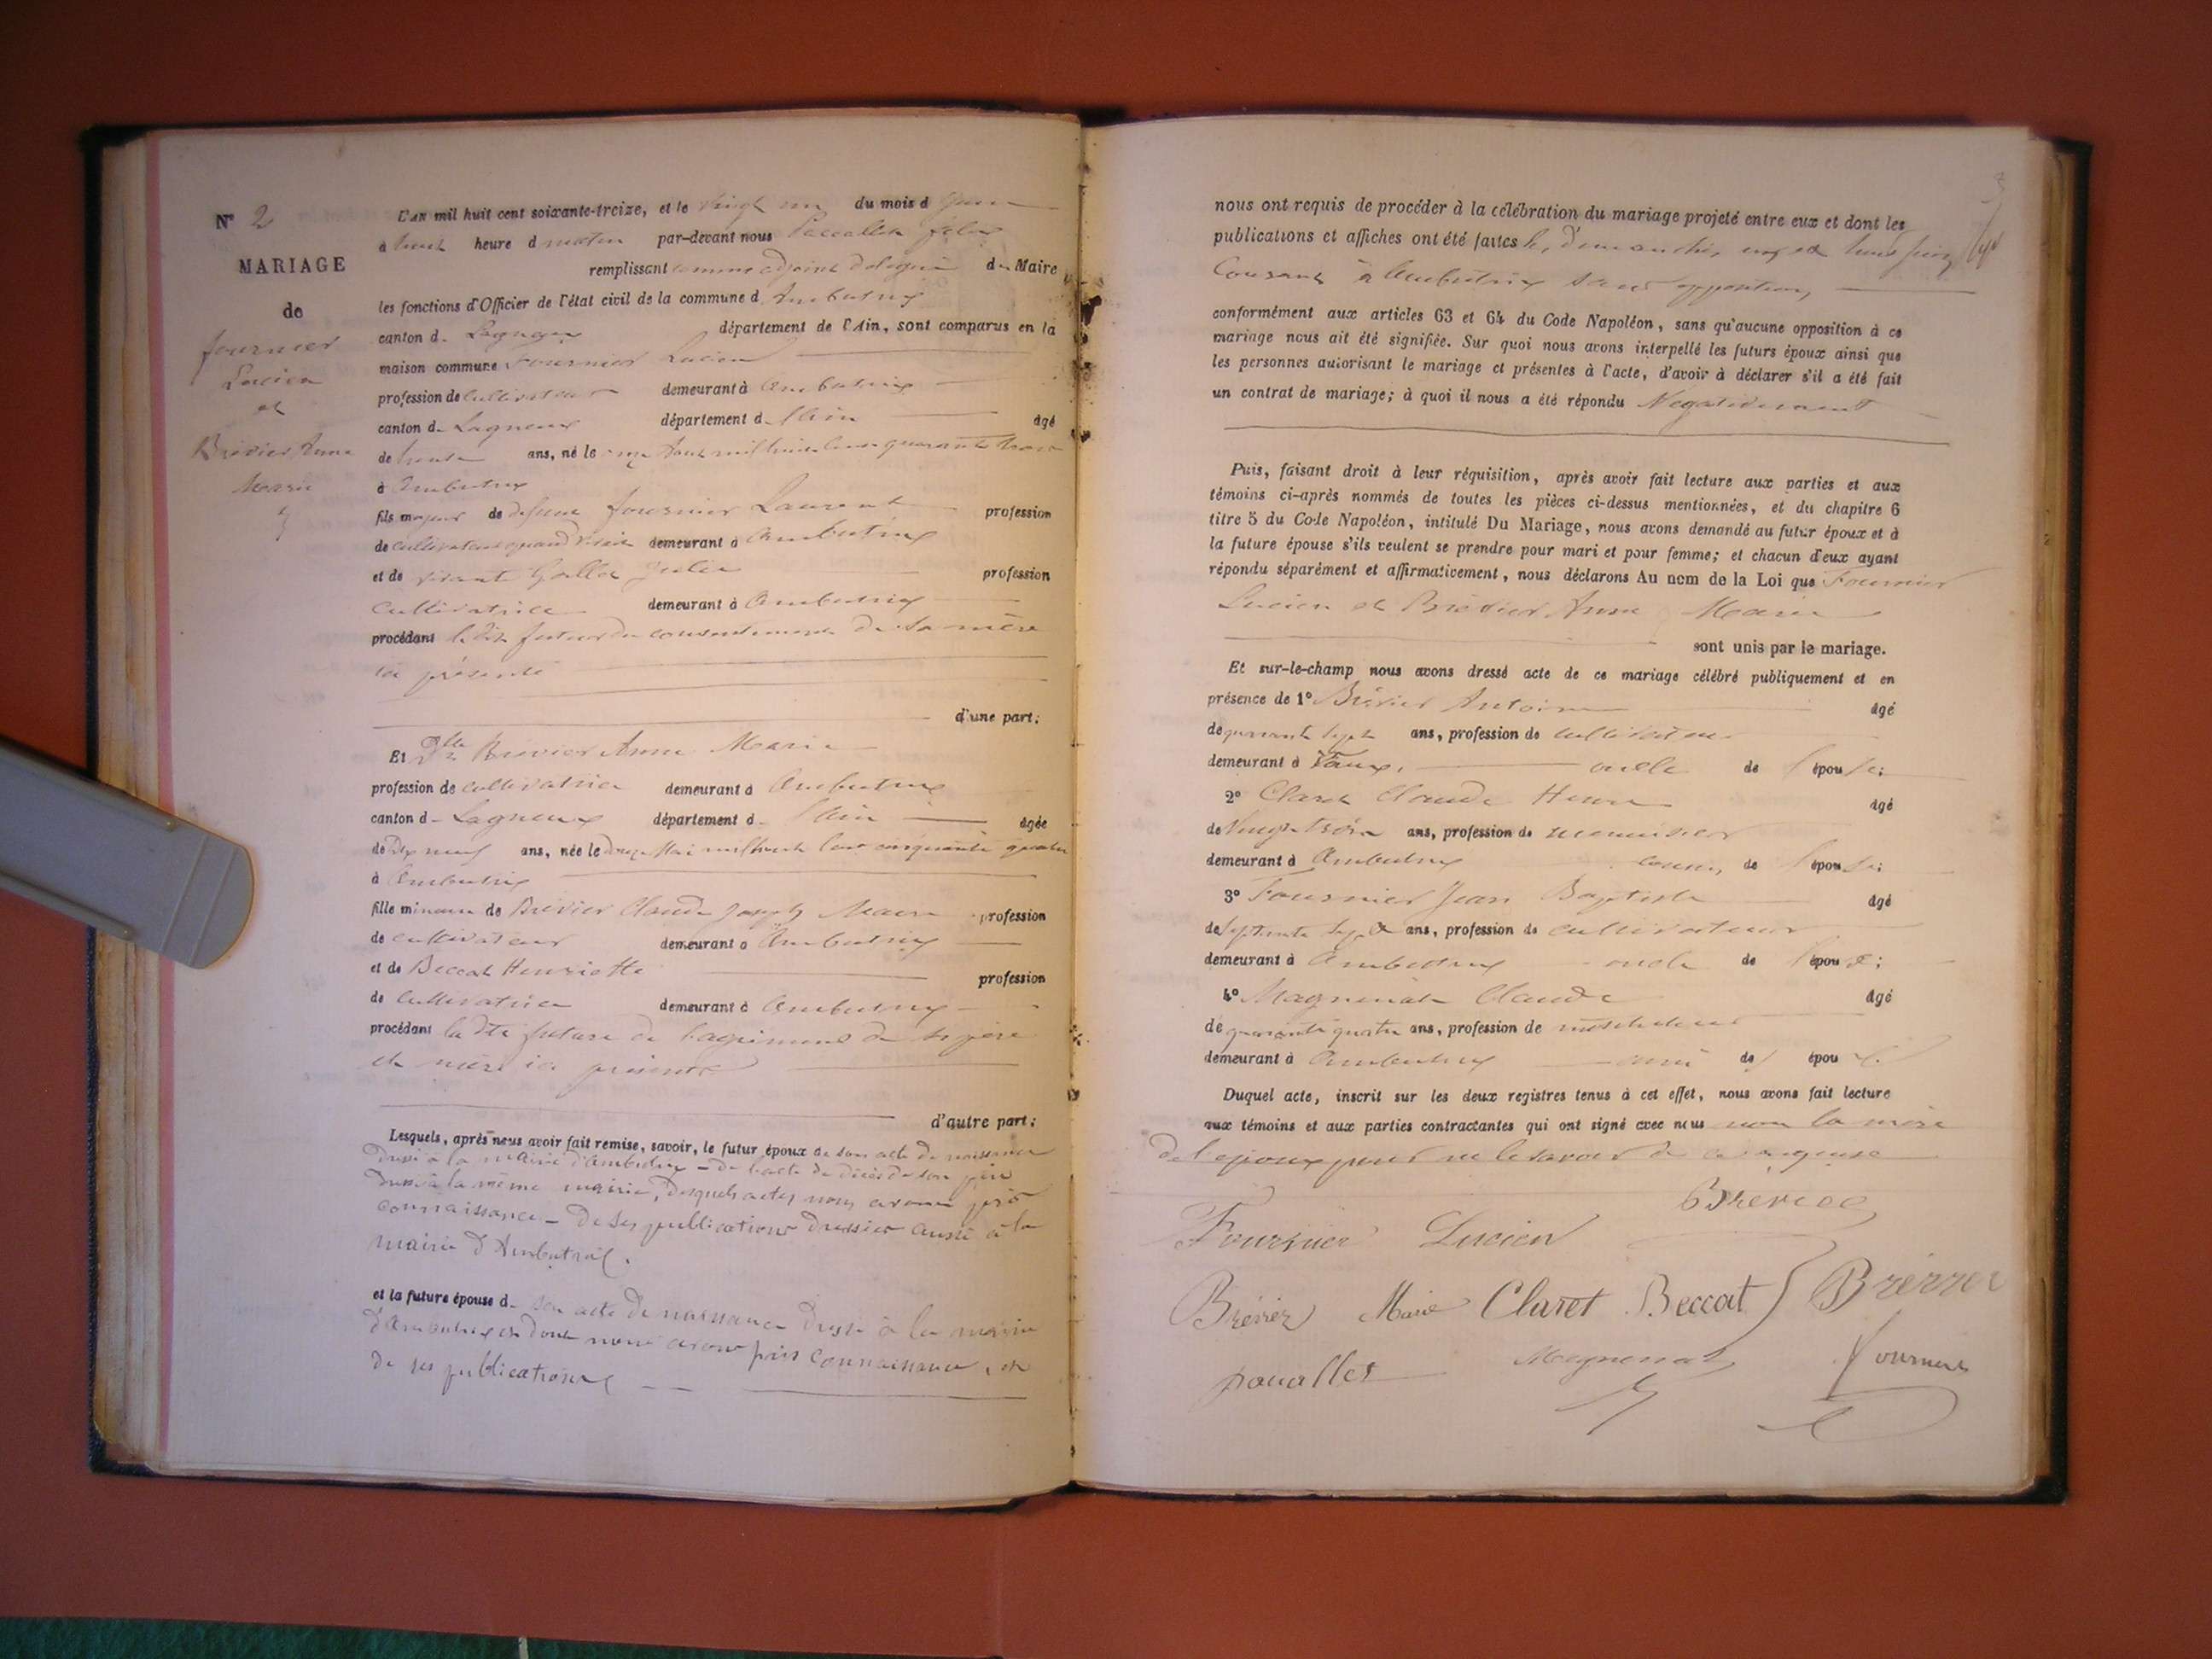 N° 2
MARIAGE
de
fournier
Lucien
et
Brévier Anne
Marie
L'an mil huit cent soixante-treize, et le vingt un du mois d Juin
à huit heure d matin par-devant nous félix
remplissant comme adjoint délégué du Maire
les fonctions d'Officier de l'état civil de la commune d Ambutrix
canton d Lagnieu département de l'Ain, sont comparus en la
maison commune Fournier Lucien
profession de cultivateur demeurant à Ambutrix
canton d Lagnieux département d l'Ain âgé
de trente ans, né le onze Aout mil huit cent quarante trois
à Ambutrix
fils majeur de défunt fournier Laurent profession
de cultivateur quand vivait demeurant à Ambutrix
et de vivante Gallet Julie profession
cultivatrice demeurant à Ambutrix
procédant ledit futur du consentement de sa mère
ici présente
d'une part;
Et Dlle Brévier Anne Marie
profession de cultivatrice demeurant à Ambutrix
canton d Lagnieux département d l'Ain âgée
de Dix neuf ans, née le douze Mai mil huit cent cinquante quatre
à Ambutrix
fille mineure de Brévier Claude Joseph Marie profession
de cultivateur demeurant à Ambutrix
et de Beccat Henriette profession
de cultivatrice demeurant à Ambutrix
procédant ladite future de l'agrément de ses père
et mère ici présents
d'autre part;
Lesquels, après nous avoir fait remise, savoir, le futur époux de son acte de naissance
dressé à la mairie d'Ambutrix - de l'acte de décès de son père
dressé à la même mairie, desquels actes nous avons pris
connaissance - de ses publications dressées aussi à la
mairie d'Ambutrix.
et la future épouse d son acte de naissance dressé à la mairie
d'Ambutrix et dont nous avons pris connaissance, et
de ses publications
3
nous ont requis de procéder à la célébration du mariage projeté entre eux et dont les
publications et affiches ont été faites les dimanches un et huit juin
Courant à Ambutrix sans opposition
conformément aux articles 63 et 64 du Code Napoléon, sans qu'aucune opposition à ce
mariage nous ait été signifiée. Sur quoi nous avons interpellé les futurs époux ainsi que
les personnes autorisant le mariage et présentes à l'acte, d'avoir à déclarer s'il a été fait
un contrat de mariage; à quoi il nous a été répondu Négativement
Puis, faisant droit à leur réquisition, après avoir fait lecture aux parties et aux
témoins ci-après nommés de toutes les pièces ci-dessus mentionnées, et du chapitre 6
titre 5 du Code Napoléon, intitulé Du Mariage, nous avons demandé au futur époux et à
la future épouse s'ils veulent se prendre pour mari et pour femme; et chacun d'eux ayant
répondu séparément et affirmativement, nous déclarons Au nom de la Loi que Fournier
Lucien et Brévier Anne Marie
sont unis par le mariage.
Et sur-le-champ nous avons dressé acte de ce mariage célébré publiquement et en
présence de 1° Brévier Antoine âgé
de quarante sept ans, profession de cultivateur
demeurant à Vaux, oncle de l'épouse;
2° Claret Claude Henri âgé
de Vingt trois ans, profession de menuisier
demeurant à Ambutrix cousin de l'épouse;
3° Fournier Jean Baptiste âgé
de septante sept ans, profession de cultivateur
demeurant à Ambutrix oncle de l'époux;
4° Magnenat Claude âgé
de quarante quatre ans, profession de
demeurant à Ambutrix ami de épou
Duquel acte, inscrit sur les deux registres tenus à cet effet, nous avons fait lecture
aux témoins et aux parties contractantes qui ont signé avec nous non la mère
de l'époux pour ne le savoir de ce requise
Brevier
Fournier Lucien
Brévier Marie Claret Beccat Brévier
pacallet Magnenat fournier